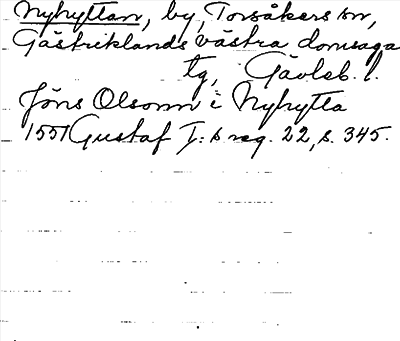 Nyhyttan, by, Torsåkers sn,
Gästriklands västra domsaga
tg, Gävleb. l.
Jöns Olsonn i Nyhytta
1551 Gustaf I:s reg. 22, s. 345.